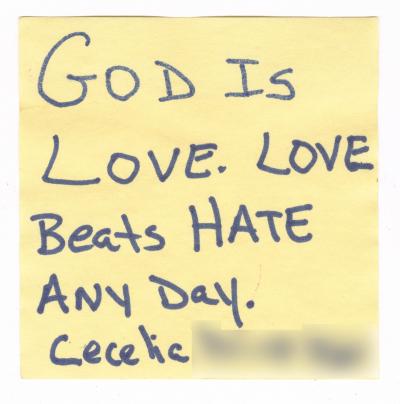 GOD IS
LOVE. LOVE
Beats HATE
ANY Day.
Cecelia